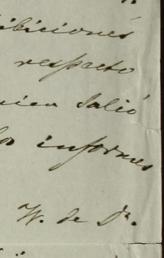 biciones
respecto
uien salió
informes
W. de Dr.